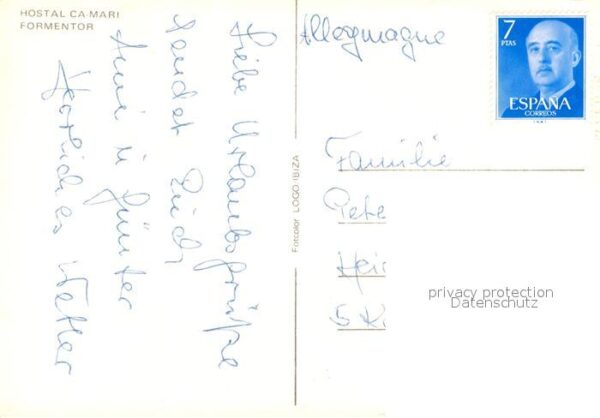 HOSTAL CA MARI
FORMENTOR
Liebe Urlaubsgrüße
sendet Euch
Anni u Günter
Herrliches Wetter
Fotcolor LOGO IBIZA
Allegmagne
7
PTAS
ESPAÑA
CORREOS
Familie
Pete
Hei
5 K
privacy protection
Datenschutz